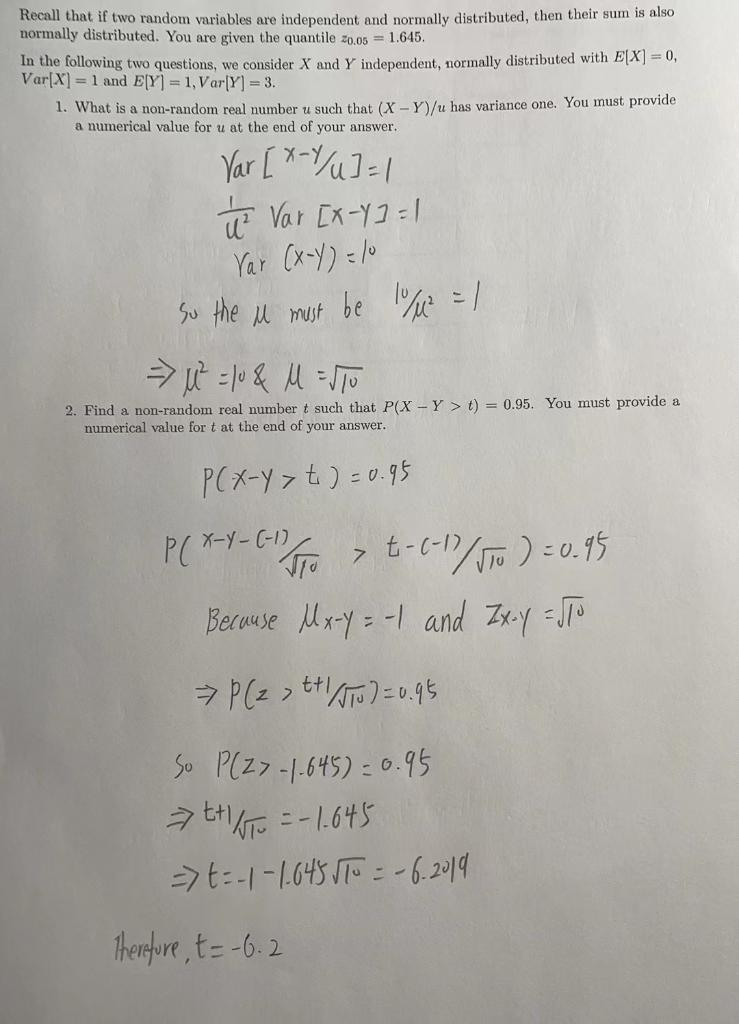 Recall that if two random variables are independent and normally distributed, then their sum is also
normally distributed. You are given the quantile z₀.₀₅ = 1.645.
In the following two questions, we consider X and Y independent, normally distributed with E[X] = 0,
Var[X] = 1 and E[Y] = 1, Var[Y] = 3.
1. What is a non-random real number u such that (X − Y)/u has variance one. You must provide
a numerical value for u at the end of your answer.
Var [ x-y/u ] = 1
1/u² Var [x-y] = 1
Var (x-y) = 10
So the μ must be 10/μ² = 1
⇒ μ² = 10 & μ = √10
2. Find a non-random real number t such that P(X − Y > t) = 0.95. You must provide a
numerical value for t at the end of your answer.
P(x-y > t) = 0.95
P( x-y-(-1)/√10 > t-(-1)/√10 ) = 0.95
Because μx-y = -1 and Zx-y = √10
⇒ P(z > t+1/√10) = 0.95
So P(Z > -1.645) = 0.95
⇒ t+1/√10 = -1.645
⇒ t = -1 - 1.645 √10 = -6.2019
Therefore, t = -6.2